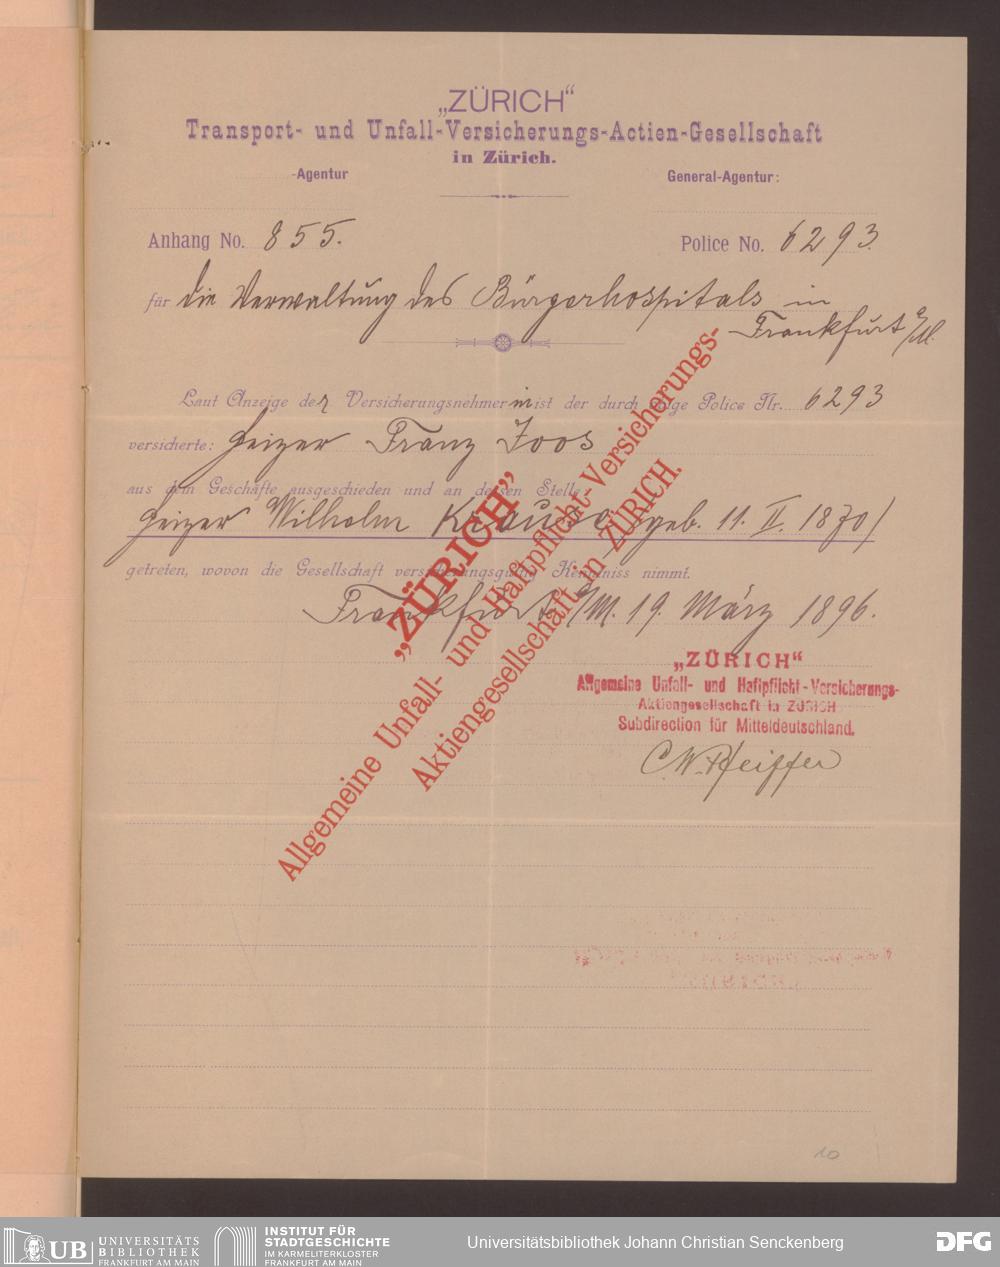 „ZÜRICH“
Transport- und Unfall-Versicherungs-Actien-Gesellschaft
in Zürich.
-Agentur
General-Agentur:
Anhang No. 855.
Police No. 6293.
für die Verwaltung des Bürgerhospitals in
Frankfurt a/M.
Laut Anzeige der Versicherungsnehmerin ist der durch obige Police Nr. 6293
versicherte: Heizer Franz Joos
aus dem Geschäfte ausgeschieden und an dessen Stelle:
Heizer Wilhelm Krause (geb. 11. II. 1870)
getreten, wovon die Gesellschaft versicherungsgültig Kenntniss nimmt.
Frankfurt a/M. 19. März 1896.
„ZÜRICH“
Allgemeine Unfall- und Haftpflicht-Versicherungs-
Aktiengesellschaft in ZÜRICH.
„ZÜRICH“
Allgemeine Unfall- und Haftpflicht-Versicherungs-
Aktiengesellschaft in ZÜRICH
Subdirection für Mitteldeutschland.
C.W. Pfeiffer
10
UB UNIVERSITÄTS
BIBLIOTHEK
FRANKFURT AM MAIN
INSTITUT FÜR
STADTGESCHICHTE
IM KARMELITERKLOSTER
FRANKFURT AM MAIN
Universitätsbibliothek Johann Christian Senckenberg
DFG